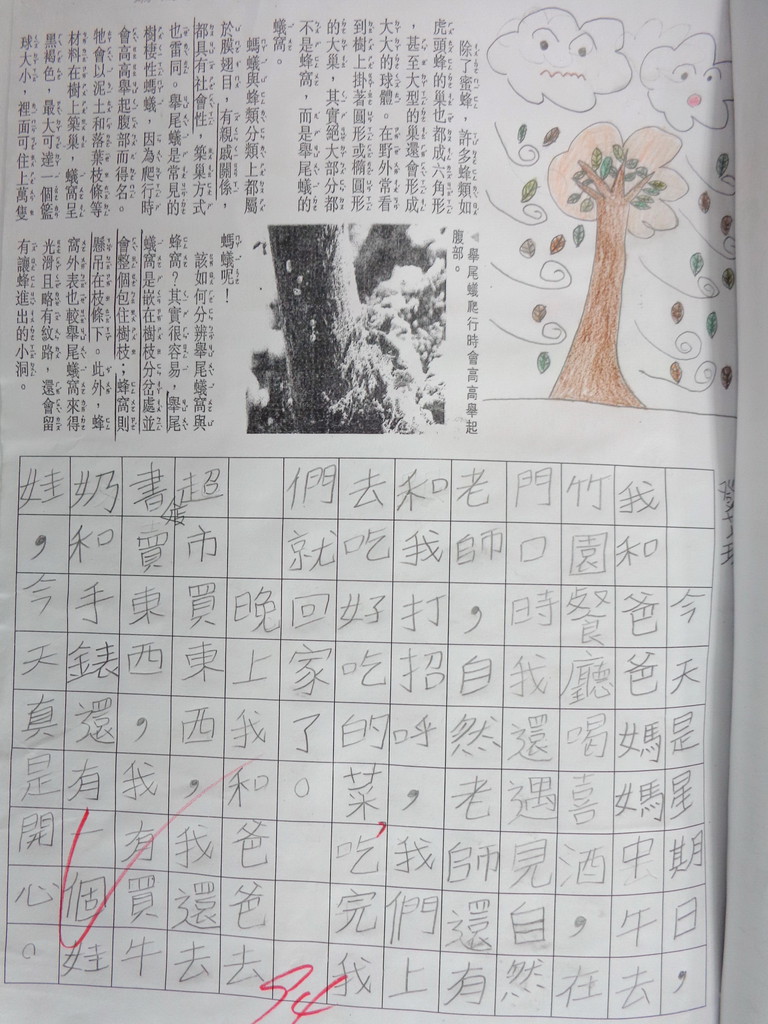 除了蜜蜂，許多蜂類如
虎頭蜂的巢也都成六角形
，甚至大型的巢還會形成
大大的球體。在野外常看
到樹上掛著圓形或橢圓形
的大巢，其實絕大部分都
不是蜂窩，而是舉尾蟻的
蟻窩。
螞蟻與蜂類分類上都屬
於膜翅目，有親戚關係，
都具有社會性，築巢方式
也雷同。舉尾蟻是常見的
樹棲性螞蟻，因為爬行時
會高高舉起腹部而得名。
牠會以泥土和落葉枝條等
材料在樹上築巢，蟻窩呈
黑褐色，最大可達一個籃
球大小，裡面可住上萬隻
◀舉尾蟻爬行時會高高舉起
腹部。
螞蟻呢！
該如何分辨舉尾蟻窩與
蜂窩？其實很容易，舉尾
蟻窩是嵌在樹枝分岔處並
會整個包住樹枝；蜂窩則
懸吊在枝條下。此外，蜂
窩外表也較舉尾蟻窩來得
光滑且略有紋路，還會留
有讓蜂進出的小洞。
今天是星期日，
我和爸爸媽媽中午去
竹園餐廳喝喜酒，在
門口時我還遇見自然
老師，自然老師還有
和我打招呼，我們上
去吃好吃的菜，吃完我
們就回家了。
晚上我和爸爸去
超市買東西，我還去
書賣東西，我有買牛
奶和手錶還有一個娃
娃，今天真是開心。
94